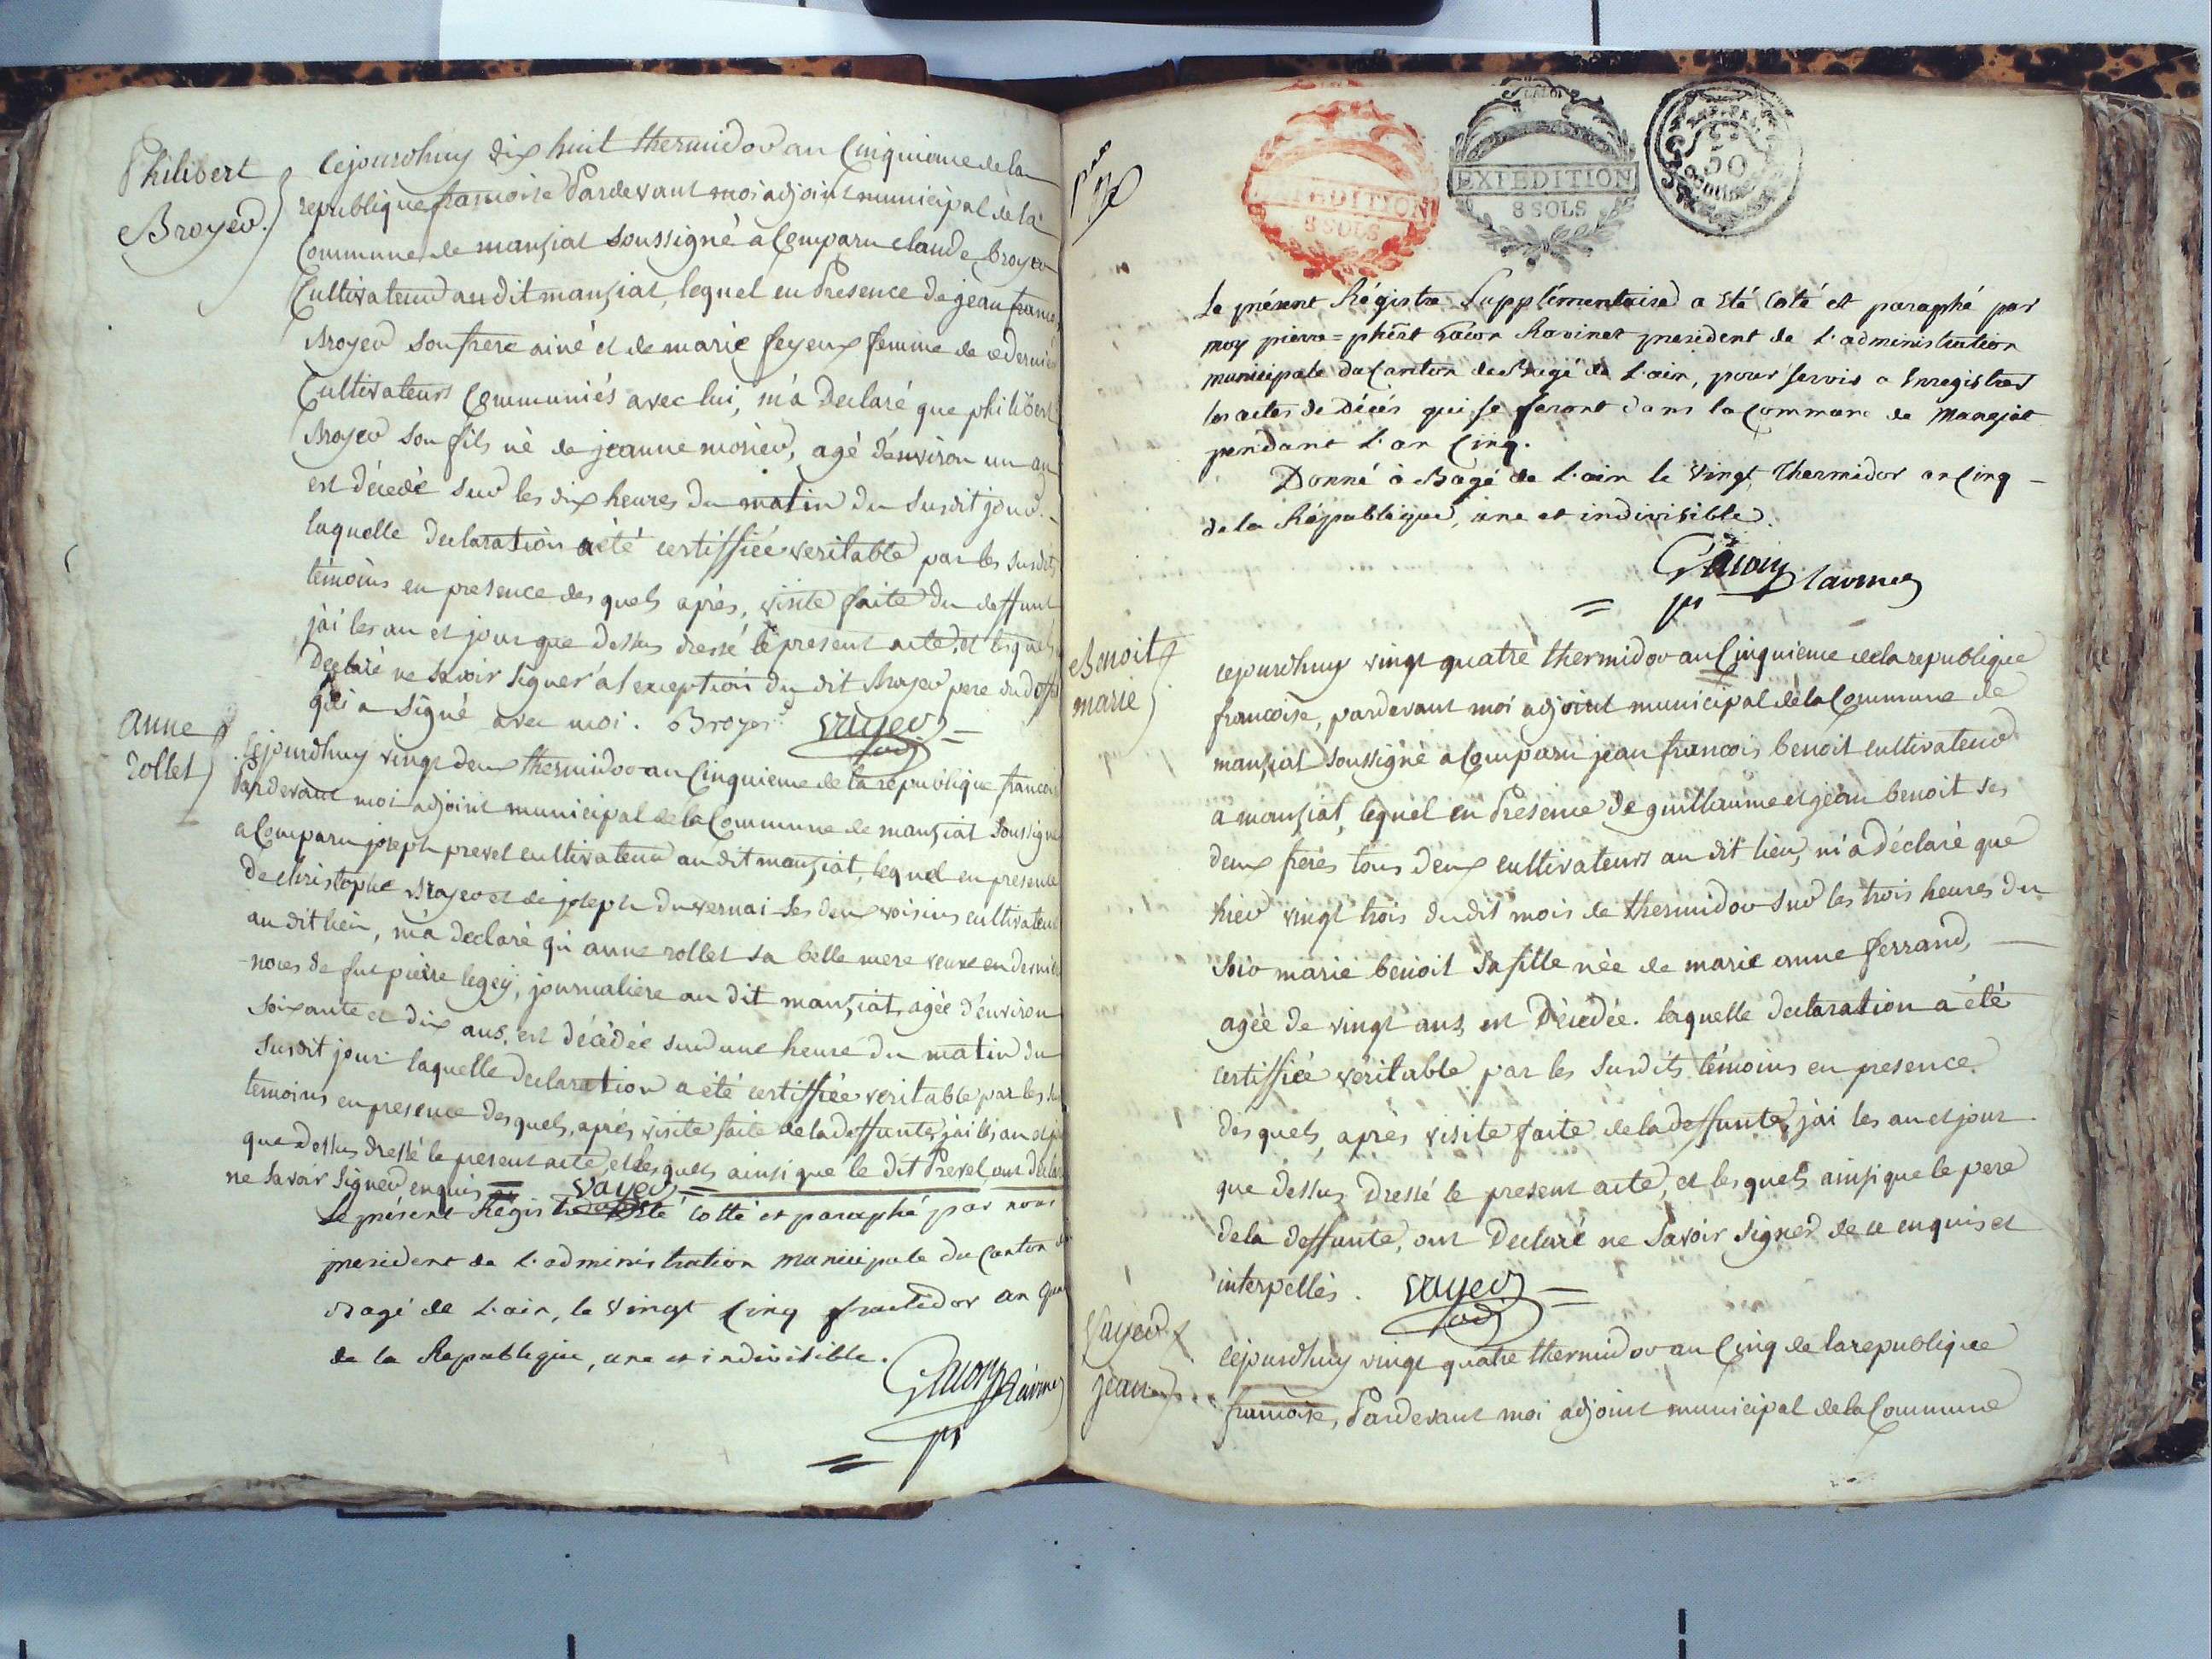 Philibert
Broyer
Cejourdhuy dix huit thermidor an Cinquieme de la
republique francoise Pardevant moi adjoint municipal de la
Commune de manziat soussigné a Comparu claude Broyer
Cultivateur au dit manziat, lequel en Presence de jean francois
Broyer son frere ainé et de marie feyeux femme de ce dernier
Cultivateurs Communiés avec lui, m'a Declaré que philibert
Broyer son fils né de jeanne morier, agé d'environ un an
est décédé sur les dix heures du matin du susdit jour.
laquelle declaration a été certiffiée veritable par les susdits
témoins en presence des quels après, visite faite du deffunt
j'ai les an et jour que dessus dressé le present acte, et lesquels
Declaré ne savoir signer à l'exception du dit Broyer pere du deffunt
qui a signé avec moi. Broyer. vayer
anne
rollet
Cejourdhuy vingt deux thermidor an Cinquieme de la republique francoise
Pardevant moi adjoint municipal de la Commune de manziat soussigné
a Comparu joseph prevel cultivateur au dit manziat, lequel en presence
de christophe Broyer et de joseph duvernai ses deux voisins cultivateurs
au dit lieu, m'a declaré qu'anne rollet sa belle mere veuve en dernieres
noces de fut pierre legey, journaliere au dit manziat, agée d'environ
soixante et dix ans, est décédée sur une heure du matin du
susdit jour. laquelle declaration a été certiffiée veritable par les
temoins en presence desquels, après visite faite de la deffunte, j'ai les an et jour
que dessus dressé le present acte, et lesquels ainsi que le dit Prevel, ont declaré
ne savoir signer enquis = vayer
Le présent Régistre a été cotté et paraphé par nous
president de l'administration municipale du Canton de
Bagé de l'ain, le vingt cinq fructidor an quatre
de la Republique, une et indivisible.
EXPEDITION
8 SOLS
EXPEDITION
8 SOLS
50
Le présent Régistre Supplémentaire a été coté et paraphé par
moy pierre=phert Ravinet president de l'administration
municipale du Canton de Bagé de l'ain, pour servir a Enregistrer
les actes de Décés qui se feront dans la Commune de Manziat
pendant l'an Cinq.
Donné à Bagé de l'ain le Vingt Thermidor an Cinq
de la République, une et indivisible.
Benoit
marie
cejourdhuy vingt quatre thermidor an Cinquieme de la republique
francoise, pardevant moi adjoint municipal de la Commune de
manziat soussigné a Comparu jean francois benoit cultivateur
a manziat, lequel en Presence de guillaume et jean benoit ses
deux freres tous deux cultivateurs au dit lieu, m'a déclaré que
hier vingt trois du dit mois de thermidor sur les trois heures du
soir marie benoit sa fille née de marie anne ferrand,
agée de vingt ans, est Décédée. laquelle declaration a été
certiffiée véritable par les susdits témoins en presence
desquels, après visite faite de la deffunte, j'ai les an et jour
que dessus Dressé le present acte, et lesquels ainsi que le pere
de la deffunte, ont Declaré ne savoir signer de ce enquis et
interpellés. vayer
Vayer
jean
cejourdhuy vingt quatre thermidor an Cinq de la republique
francoise, Pardevant moi adjoint municipal de la Commune